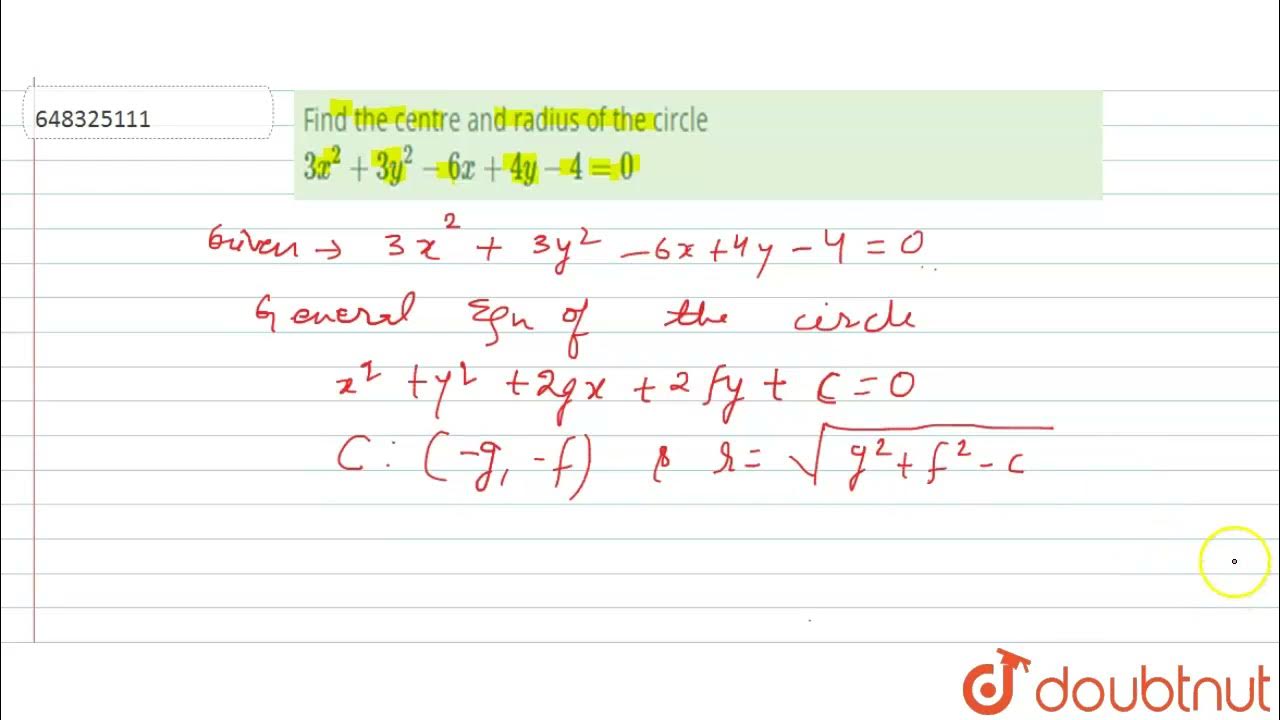 648325111
Find the centre and radius of the circle
3x² + 3y² − 6x + 4y − 4 = 0
Given → 3x² + 3y² − 6x + 4y − 4 = 0
General Eqn of the circle
x² + y² + 2gx + 2fy + c = 0
C : (−g, −f) & r = √(g² + f² − c)
doubtnut